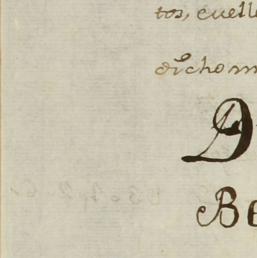 tos, cuell
dichom
D
Be